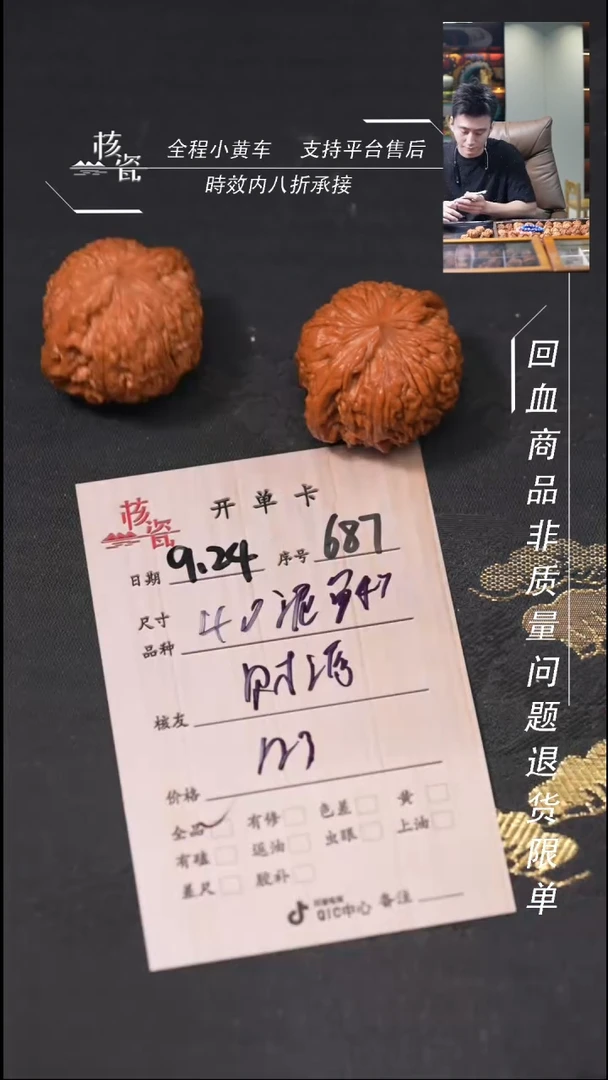 核瓷
全程小黄车 支持平台售后
時效内八折承接
回血商品非质量问题退货限单
核瓷
开单卡
日期 9.24 序号 687
尺寸
品种
核友
价格
全品 有修 色差 黄
有磕 返油 虫眼 上油
差尺 胶补
QIC中心 备注